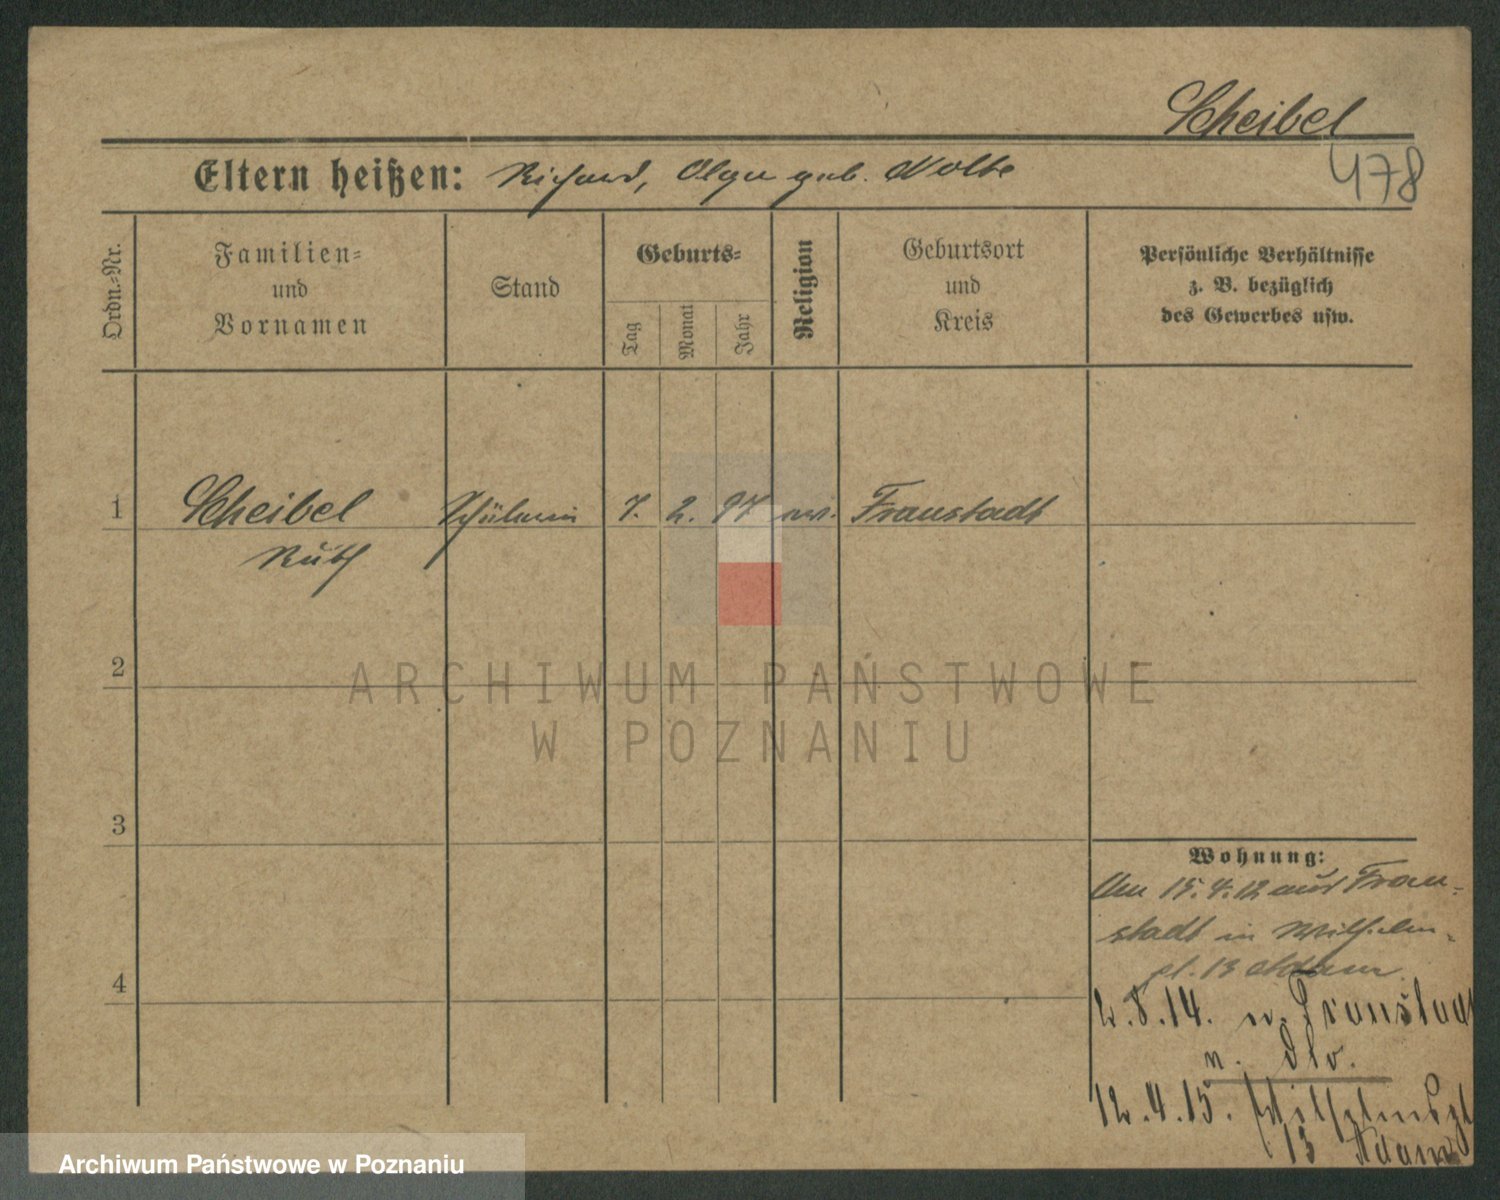 Scheibel
478
Eltern heißen: Richard, Olga geb. Nolte
Ordn.-Nr.
Familien- und Vornamen
Stand
Geburts-
Tag
Monat
Jahr
Religion
Geburtsort und Kreis
Persönliche Verhältnisse
z. B. bezüglich
des Gewerbes usw.
1 Scheibel Schülerin 7. 2. 97 ev. Fraustadt
Ruth
2
3
4
Wohnung:
Am 15.4.12 aus Frau-
stadt in Wilhelm-
pl. 13 Adam
2.8.14. n. Fraustadt
n.
12.4.15. Wilhelmspl
13 Adam
ARCHIWUM PAŃSTWOWE
W POZNANIU
Archiwum Państwowe w Poznaniu